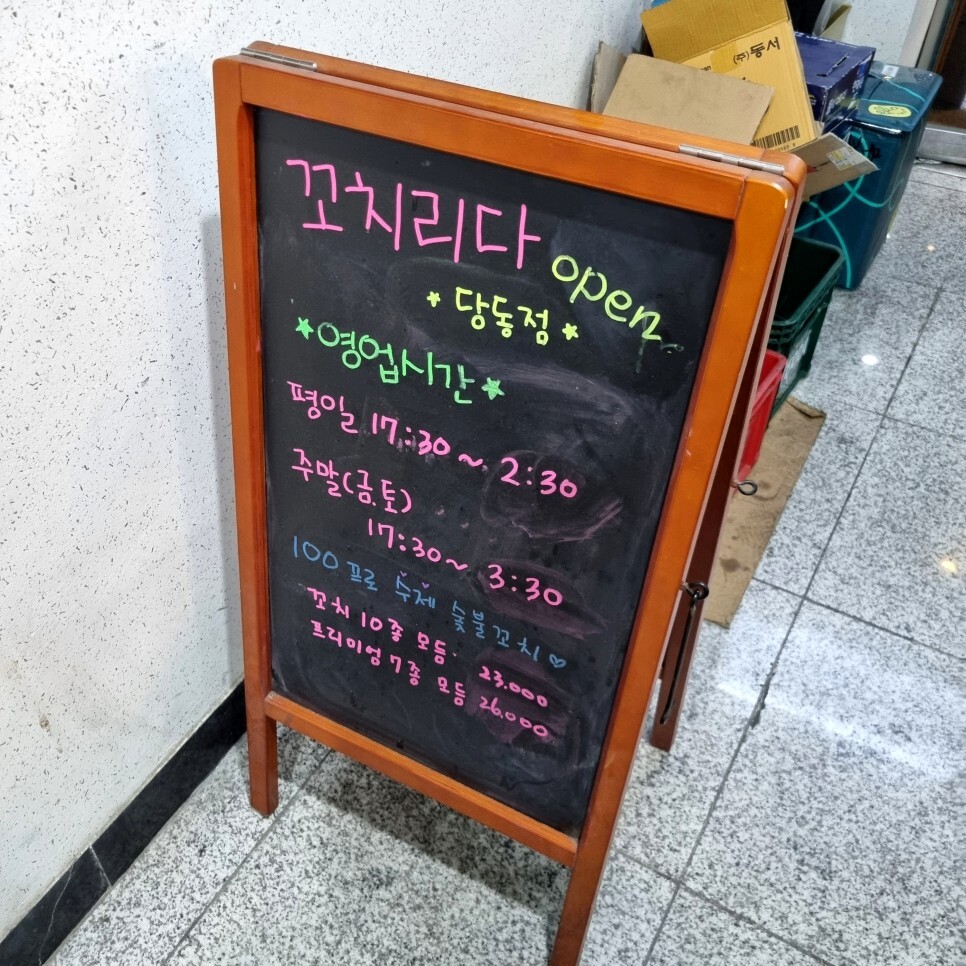 (주)동서
꼬치리다
open
* 당동점 *
★영업시간★
평일 17:30 ~ 2:30
주말(금.토)
17:30 ~ 3:30
100프로 수제 숯불꼬치♡
꼬치 10종 모듬. 23.000
프리미엄 7종 모듬 26.000